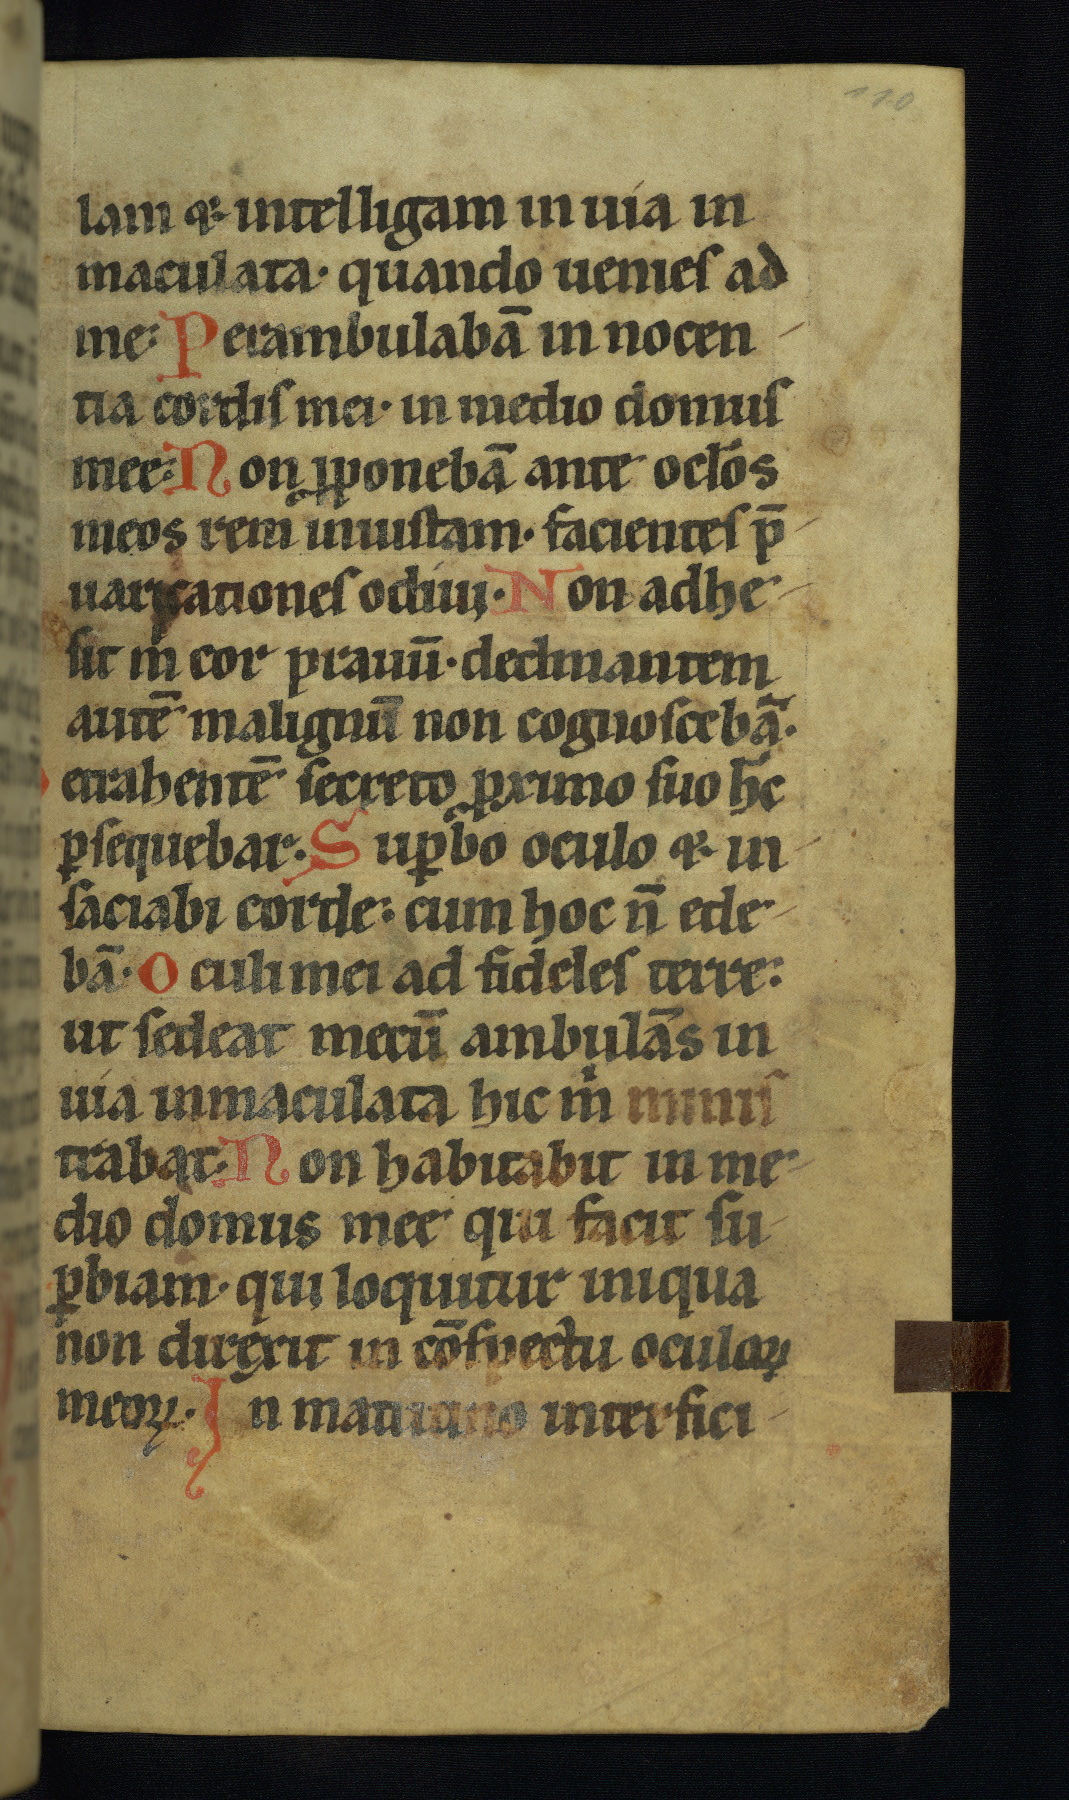 110
lam ⁊ intelligam in uia in
maculata· quando uenies ad
me: Perambulabā in nocen
tia cordis mei· in medio domus
mee: Non ꝓponebā ante oclōs
meos rem iniustam· facientes p̄
uaricationes odiui· Non adhe
sit m̄ cor prauū· declinantem
autē malignū non cognoscebā·
etrahentē secreto ꝓximo suo hc̄
ꝑsequebar· Suꝑbo oculo ⁊ in
saciabi corde: cum hoc n̄ ede
bā· Oculi mei ad fideles terre:
ut sedeat mecū ambulās in
uia inmaculata hic m̄ minis
trabat: Non habitabit in me
dio domus mee qui facit su
ꝑbiam· qui loquitur iniqua
non direxit in cōspectu oculoꝝ
meoꝝ· In matutino interfici